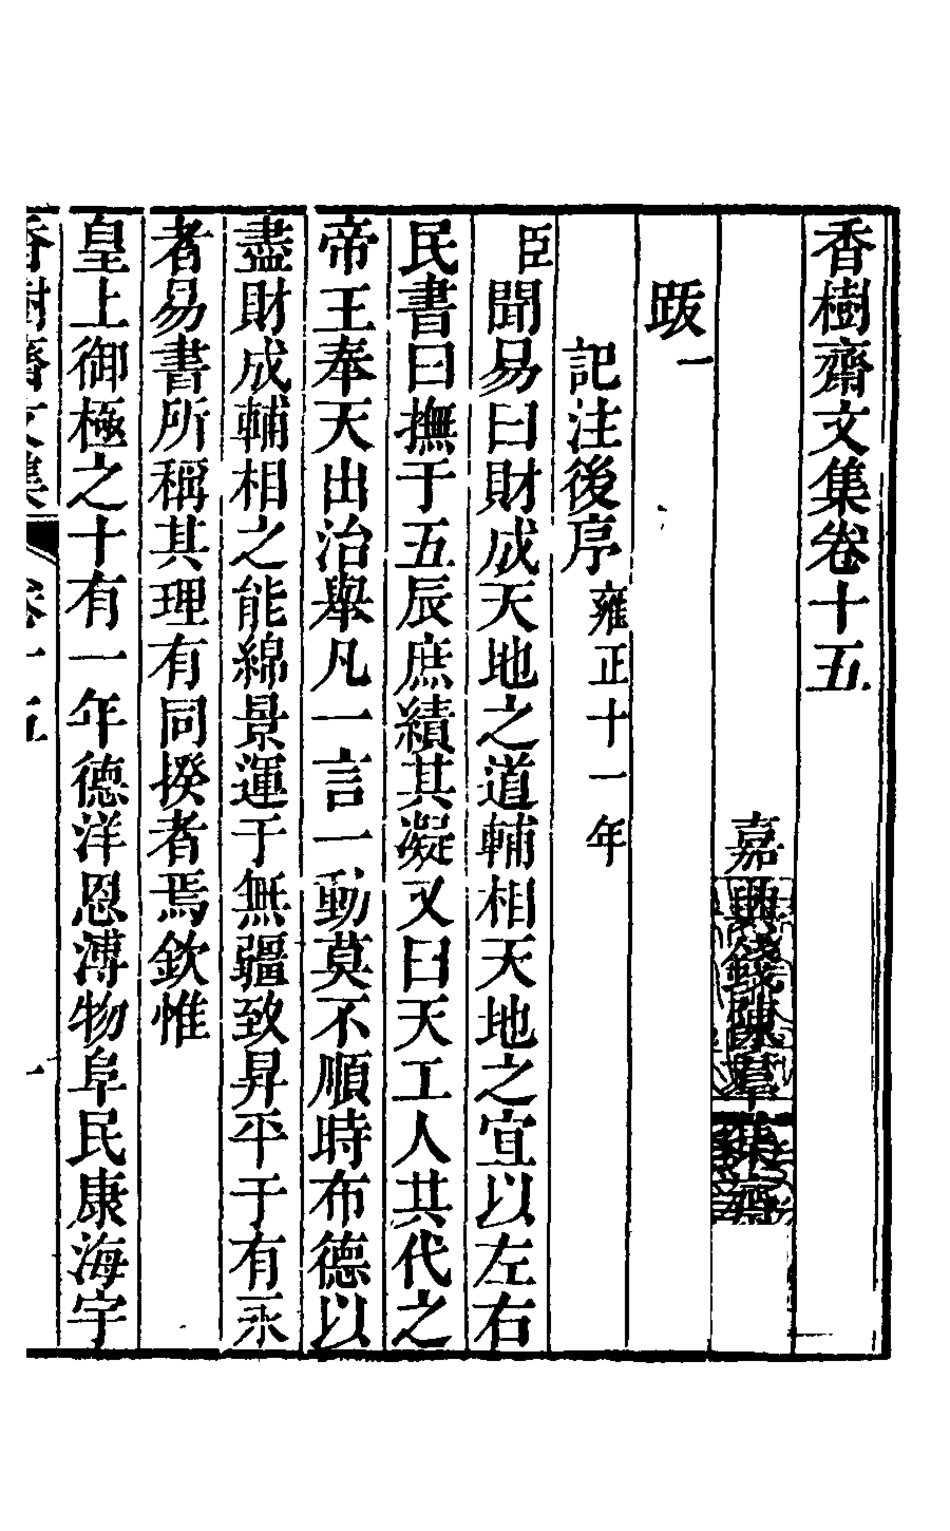 香樹齋文集卷十五
嘉興錢陳羣集齋
跋一
記注後序 雍正十一年
臣聞易曰財成天地之道輔相天地之宜以左右
民書曰撫于五辰庶績其凝又曰天工人其代之
帝王奉天出治舉凡一言一動莫不順時布德以
盡財成輔相之能綿景運于無疆致昇平于有永
者易書所稱其理有同揆者焉欽惟
皇上御極之十有一年德洋恩溥物阜民康海宇
香樹齋文集 卷十五 一